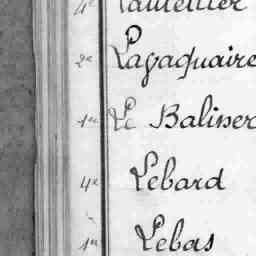 2e Lagaquaire
1re Le Baliner
4e Lebard
1re Lebas